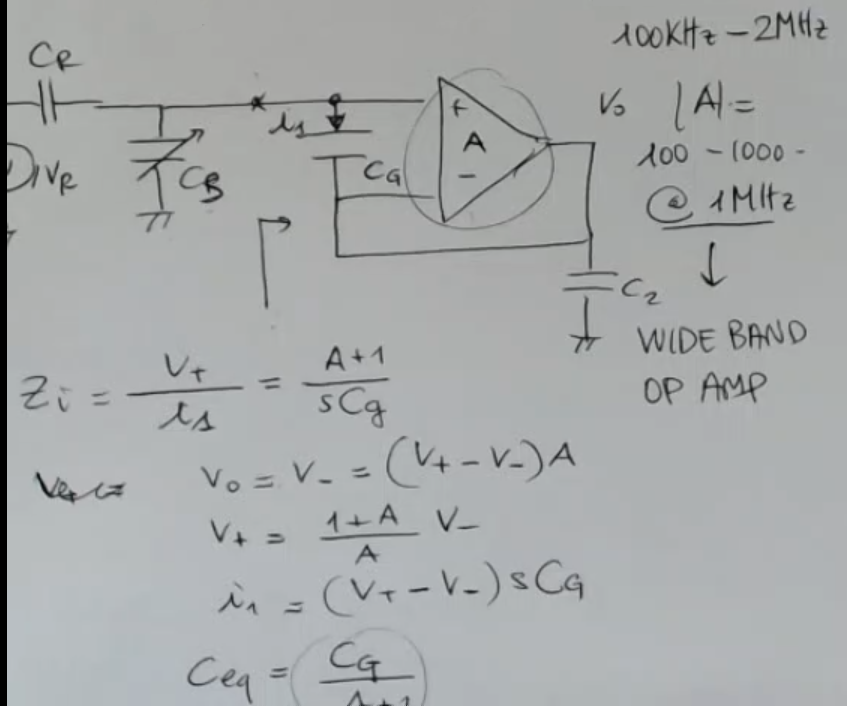 100KHz – 2MHz
CR
i1
+
A
−
Vo |A| =
100 – 1000 -
@ 1MHz
VR
CB
CG
C2
WIDE BAND
OP AMP
Zi = V+ / i1 = A+1 / sCg
Vo = V- = (V+ – V-) A
V+ = 1+A / A V-
i1 = (V+ – V-) sCG
Ceq = CG / A+1